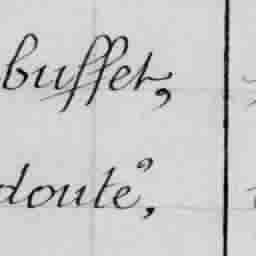 buffet,
doute,